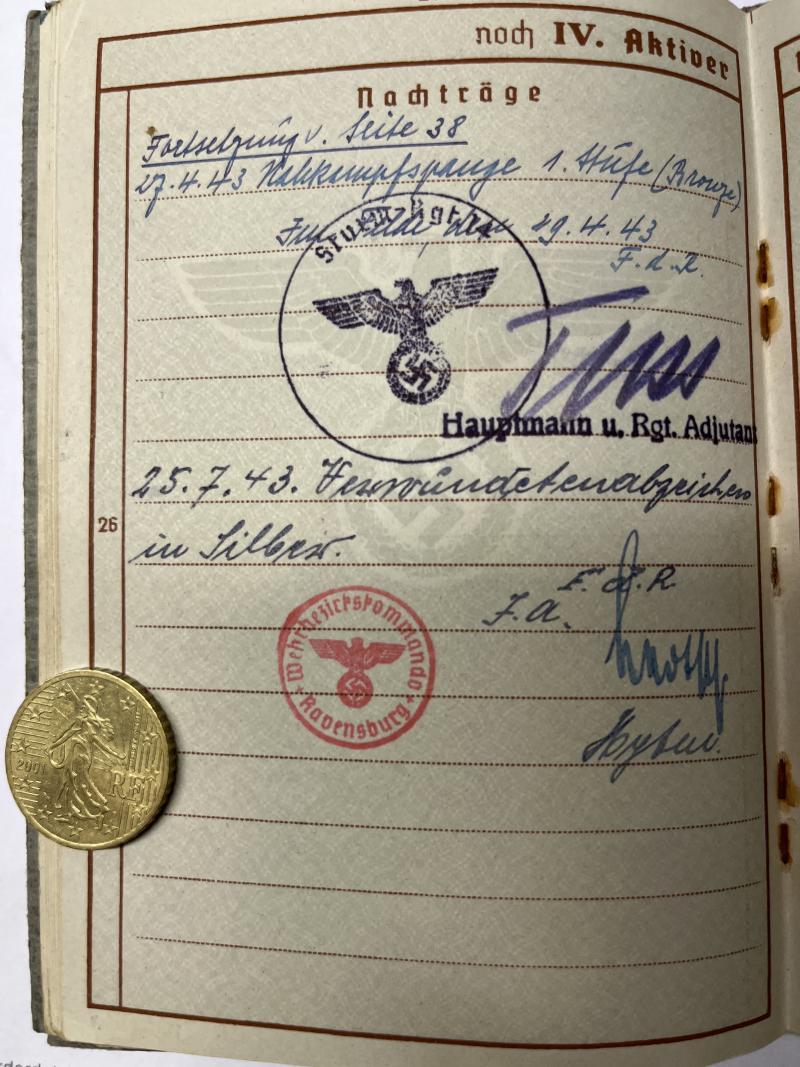 noch IV. Aktiver
Nachträge
Fortsetzung v. Seite 38
27.4.43 Nahkampfspange 1. Stufe (Bronze)
Im Felde, den 29.4.43
F.d.R.
Sturm-Rgt.
Hauptmann u. Rgt. Adjutant
25.7.43. Verwundetenabzeichen
26
in Silber.
F.d.R
I.A.
Wehrbezirkskommando
Ravensburg
2001
RF